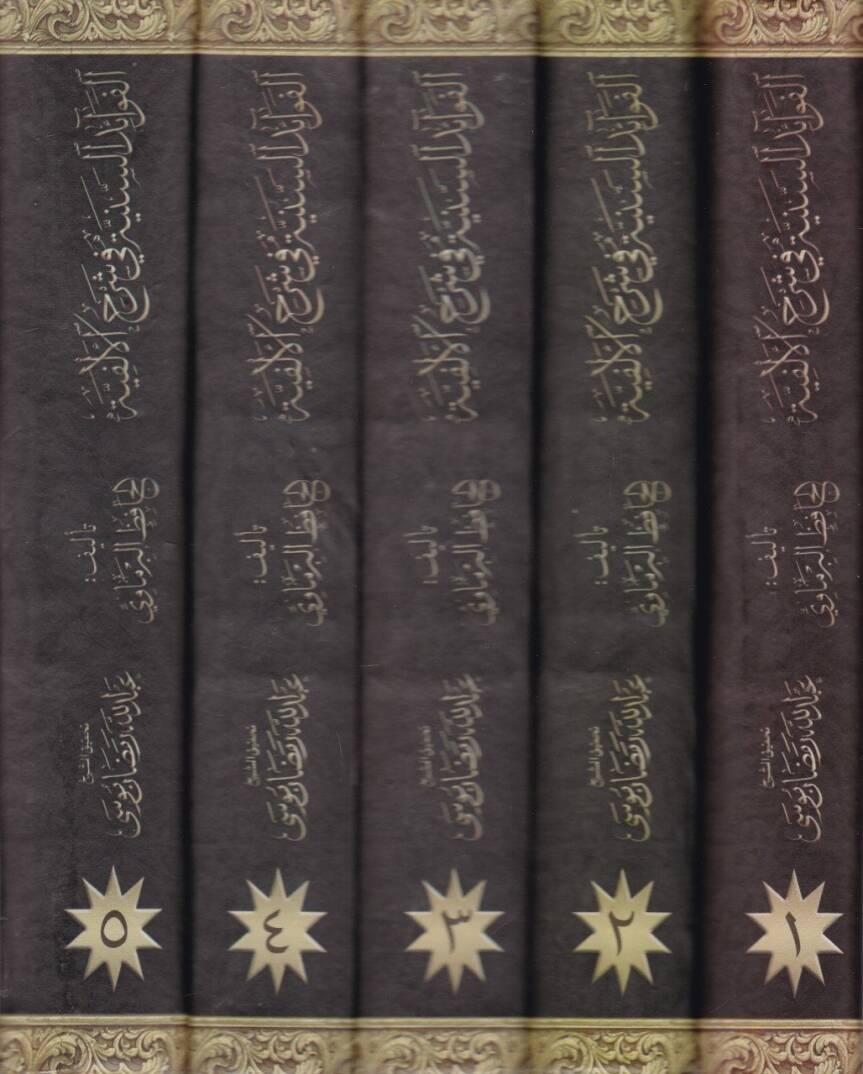 الفوائد السنية في شرح الألفية
تأليف:
الحافظ البرماوي
تحقيق الشيخ
عبد الله رمضان موسى
١
الفوائد السنية في شرح الألفية
تأليف:
الحافظ البرماوي
تحقيق الشيخ
عبد الله رمضان موسى
٢
الفوائد السنية في شرح الألفية
تأليف:
الحافظ البرماوي
تحقيق الشيخ
عبد الله رمضان موسى
٣
الفوائد السنية في شرح الألفية
تأليف:
الحافظ البرماوي
تحقيق الشيخ
عبد الله رمضان موسى
٤
الفوائد السنية في شرح الألفية
تأليف:
الحافظ البرماوي
تحقيق الشيخ
عبد الله رمضان موسى
٥